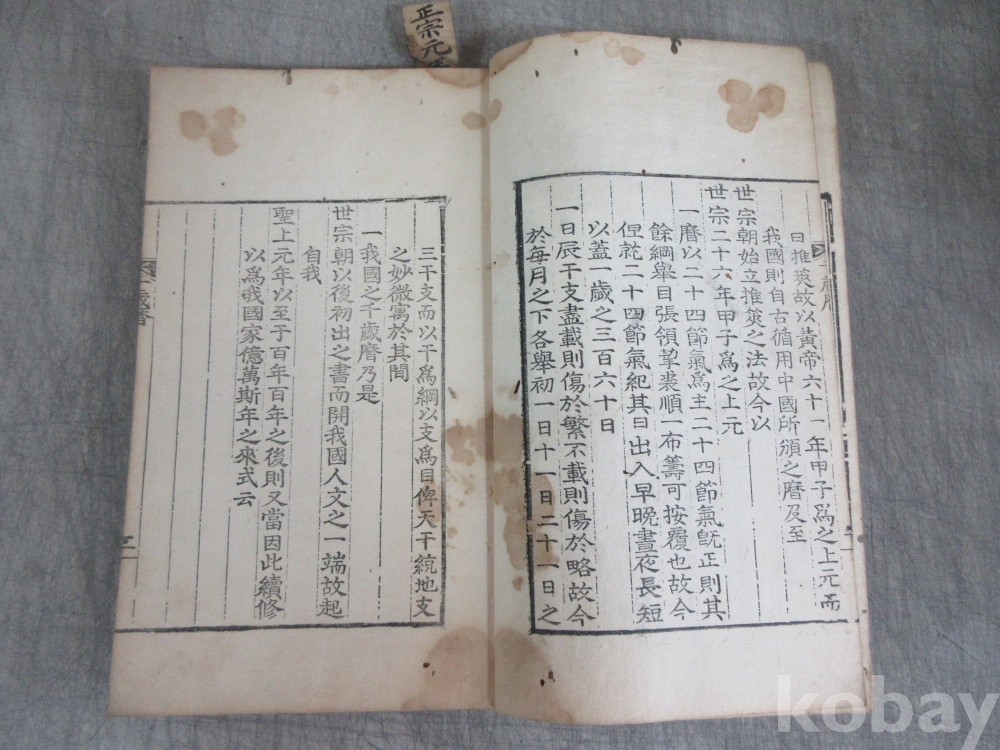 正宗元
曰推筴故以黃帝六十一年甲子爲之上元而
我國則自古循用中國所頒之曆及至
世宗朝始立推筴之法故今以
世宗二十六年甲子爲之上元
一曆以二十四節氣爲主二十四節氣旣正則其
餘綱舉目張領挈裘順一布籌可按覆也故今
但就二十四節氣紀其日出入早晚晝夜長短
以蓋一歲之三百六十日
一日辰干支盡載則傷於繁不載則傷於略故今
於每月之下各舉初一日十一日二十一日之
三干支而以干爲綱以支爲目俾天干統地支
之妙微寓於其間
一我國之千歲曆乃是
世宗朝以後初出之書而開我國人文之一端故起
自我
聖上元年以至于百年百年之後則又當因此續修
以爲我國家億萬斯年之來式云
千歲曆
二
kobay